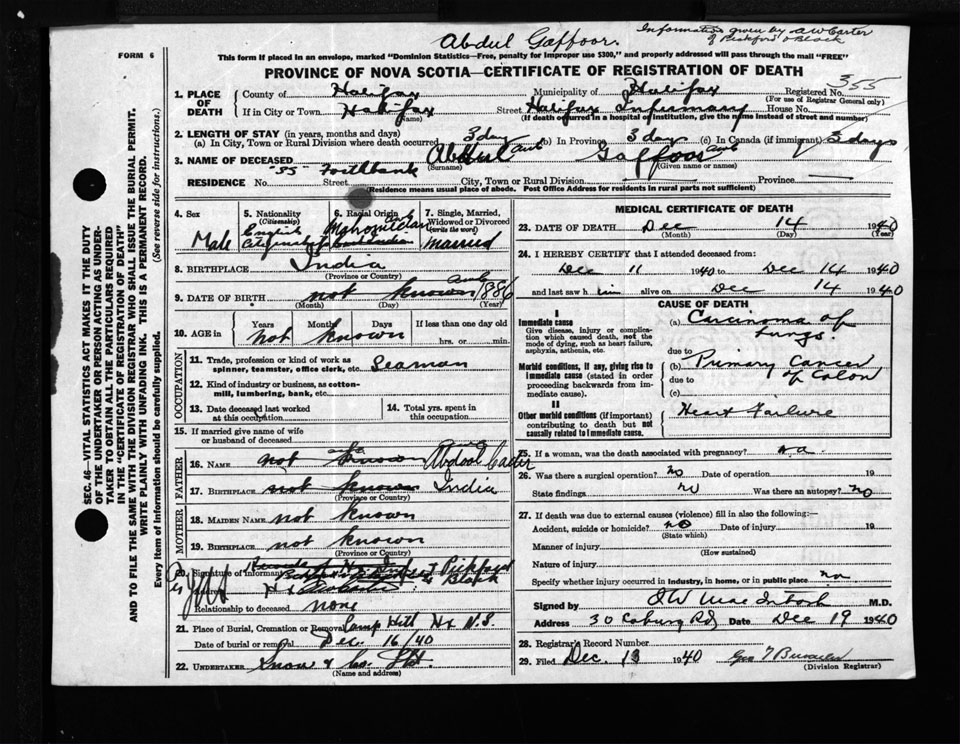 Abdul Gaffoor.
Information given by A W Carter
of Pickford & Black
FORM 6
This form if placed in an envelope, marked "Dominion Statistics—Free, penalty for improper use $300," and properly addressed will pass through the mail "FREE"
PROVINCE OF NOVA SCOTIA—CERTIFICATE OF REGISTRATION OF DEATH
1. PLACE OF DEATH
County of Halifax Municipality of Halifax Registered No. 355
(For use of Registrar General only)
If in City or Town Halifax Street Halifax Infirmary House No.
(Name) (If death occurred in a hospital or institution, give the name instead of street and number)
2. LENGTH OF STAY (in years, months and days)
(a) In City, Town or Rural Division where death occurred 3 days (b) In Province 3 days (c) In Canada (if immigrant) 3 days
3. NAME OF DECEASED Abdul Gaffoor
(Surname) (Given name or names)
"SS" Forthbank
RESIDENCE No. Street City, Town or Rural Division Province
(Residence means usual place of abode. Post Office Address for residents in rural parts not sufficient)
4. Sex
Male
5. Nationality
(Citizenship)
English
6. Racial Origin
7. Single, Married, Widowed or Divorced
(write the word)
Married
8. BIRTHPLACE India
(Province or Country)
9. DATE OF BIRTH not known 1886
(Month) (Day) (Year)
10. AGE in
Years Months Days If less than one day old
not known hrs. or min.
OCCUPATION
11. Trade, profession or kind of work as spinner, teamster, office clerk, etc. Seaman
12. Kind of industry or business, as cotton-mill, lumbering, bank, etc.
13. Date deceased last worked at this occupation
14. Total yrs. spent in this occupation
15. If married give name of wife or husband of deceased
FATHER
16. NAME not known Abdool Cader
17. BIRTHPLACE not known India
(Province or Country)
MOTHER
18. MAIDEN NAME not known
19. BIRTHPLACE not known
(Province or Country)
20. Signature of informant Pickford & Black
Relationship to deceased none
21. Place of Burial, Cremation or Removal Camp Hill Hx N.S.
Date of burial or removal Dec. 16/40
22. UNDERTAKER Snow & Co. Ltd
(Name and address)
MEDICAL CERTIFICATE OF DEATH
23. DATE OF DEATH Dec 14 1940
(Month) (Day) (Year)
24. I HEREBY CERTIFY that I attended deceased from:
Dec 11 1940 to Dec 14 1940
and last saw h im alive on Dec 14 1940
CAUSE OF DEATH
I
Immediate cause
Give disease, injury or complication which caused death, not the mode of dying, such as heart failure, asphyxia, asthenia, etc.
(a) Carcinoma of lungs.
due to
Morbid conditions, if any, giving rise to immediate cause (stated in order proceeding backwards from immediate cause).
(b) Primary Cancer of Colon
due to
(c)
II
Other morbid conditions (if important) contributing to death but not causally related to immediate cause.
Heart Failure
25. If a woman, was the death associated with pregnancy? n.a.
26. Was there a surgical operation? no Date of operation 19
State findings no Was there an autopsy? no
27. If death was due to external causes (violence) fill in also the following:—
Accident, suicide or homicide? no Date of injury 19
(State which)
Manner of injury
(How sustained)
Nature of injury
Specify whether injury occurred in industry, in home, or in public place no
Signed by MacIntosh M.D.
Address 30 Coburg Rd Date Dec 19 1940
28. Registrar's Record Number
29. Filed Dec. 13 1940
(Division Registrar)
SEC. 46—VITAL STATISTICS ACT MAKES IT THE DUTY OF THE UNDERTAKER OR PERSON ACTING AS UNDERTAKER TO OBTAIN ALL THE PARTICULARS REQUIRED IN THE "CERTIFICATE OF REGISTRATION OF DEATH" AND TO FILE THE SAME WITH THE DIVISION REGISTRAR WHO SHALL ISSUE THE BURIAL PERMIT.
WRITE PLAINLY WITH UNFADING INK. THIS IS A PERMANENT RECORD.
Every item of Information should be carefully supplied. (See reverse side for instructions.)